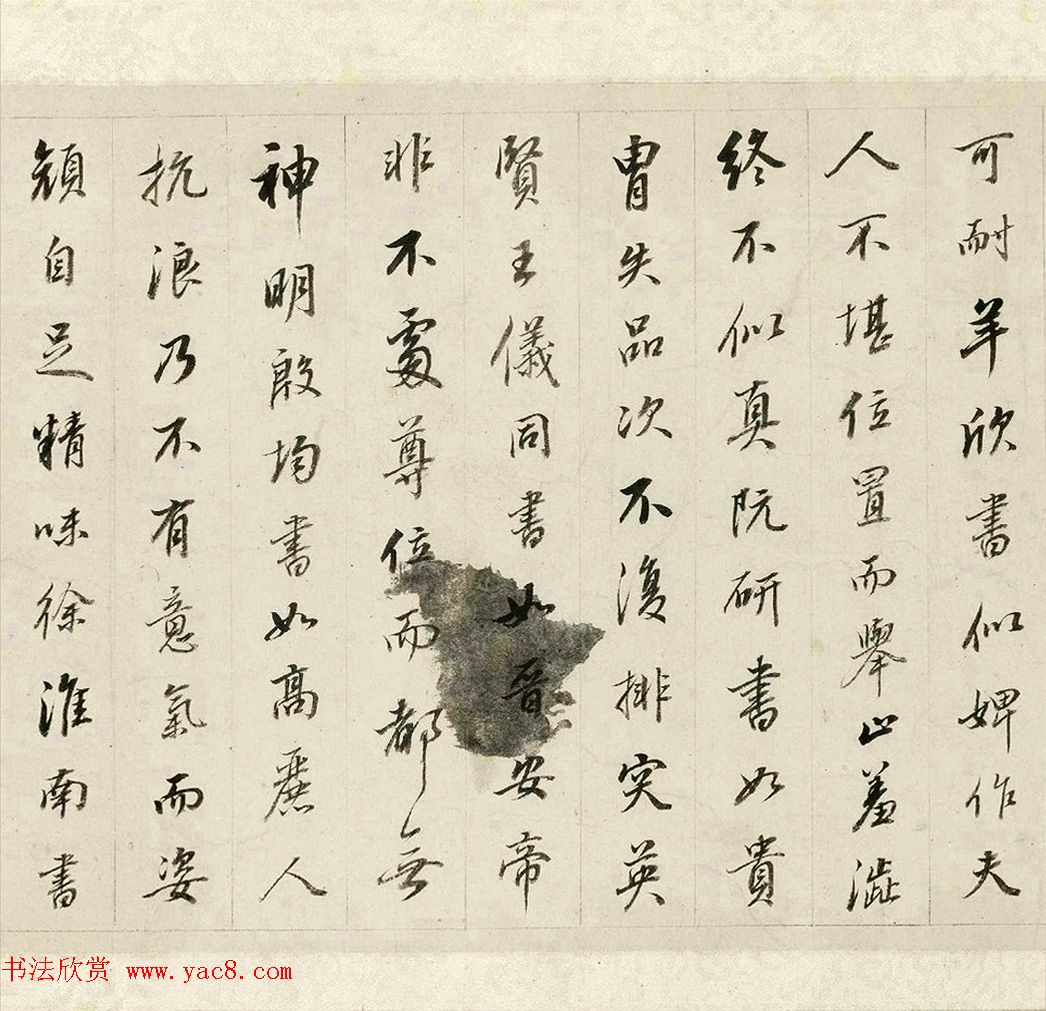 可耐羊欣書似婢作夫
人不堪位置而舉止羞澀
終不似真阮研書如貴
胄失品次不復排突英
賢王儀同書如晉安帝
非不處尊位而都無
神明殷均書如高麗人
抗浪乃不有意氣而姿
顏自足精味徐淮南書
书法欣赏 www.yac8.com